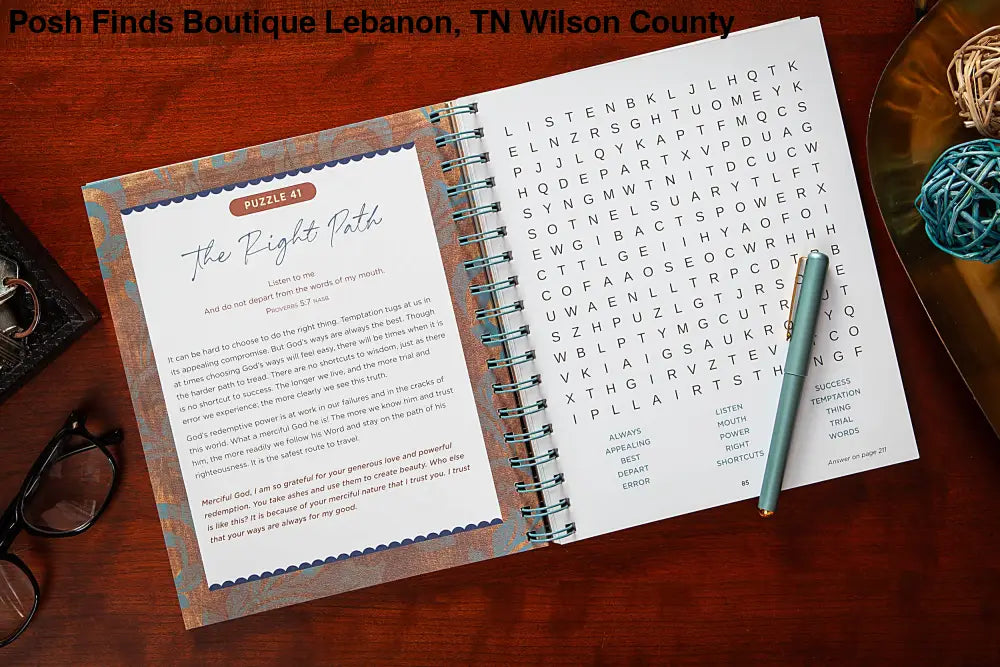 Posh Finds Boutique Lebanon, TN Wilson County
PUZZLE 41
The Right Path
Listen to me
And do not depart from the words of my mouth.
PROVERBS 5:7 NASB
It can be hard to choose to do the right thing. Temptation tugs at us in
its appealing compromise. But God's ways are always the best. Though
at times choosing God's ways will feel easy, there will be times when it is
the harder path to tread. There are no shortcuts to wisdom, just as there
is no shortcut to success. The longer we live, and the more trial and
error we experience, the more clearly we see this truth.
God's redemptive power is at work in our failures and in the cracks of
this world. What a merciful God he is! The more we know him and trust
him, the more readily we follow his Word and stay on the path of his
righteousness. It is the safest route to travel.
Merciful God, I am so grateful for your generous love and powerful
redemption. You take ashes and use them to create beauty. Who else
is like this? It is because of your merciful nature that I trust you. I trust
that your ways are always for my good.
L I S T E N B K L J L H Q T K
E L N Z R S G H T U O M E Y K
P J J L Q Y K A P T F M Q C S
H Q D E P A R T X V P D U A G
S Y N G M W T N I T D C U C W
S O T N E L S U A R Y T L F T
E W G I B A C T S P O W E R X
C T T L G E I I H Y A O F O I
C O F A A O S E O C W R H H H
U W A E N L L T R P C D T B
S Z H P U Z L G T J R S E
W B L P T Y M G C U T R U T
V K I A I G S A U K R Q Y Q
X T H G I R V Z T E V C O
I P L L A I R T S T H N G F
ALWAYS
APPEALING
BEST
DEPART
ERROR
LISTEN
MOUTH
POWER
RIGHT
SHORTCUTS
SUCCESS
TEMPTATION
THING
TRIAL
WORDS
85
Answer on page 211